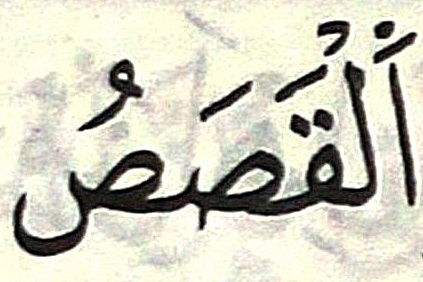 اَلْقَصَصُ